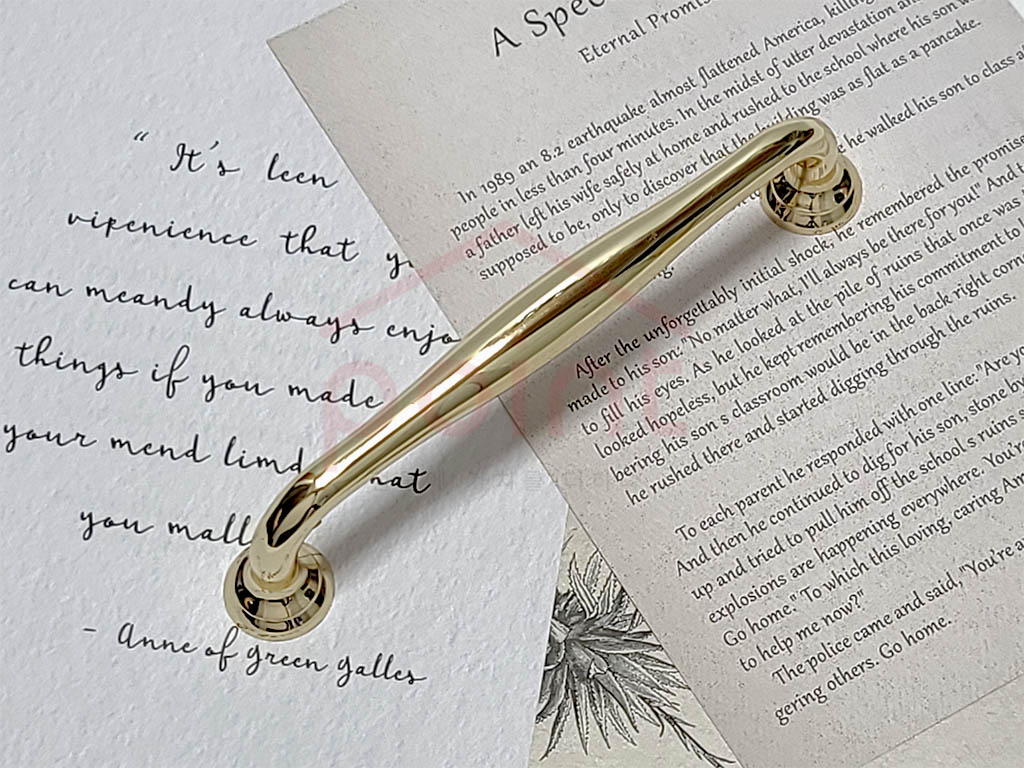 “ It's leen
vipenience that y
can meandy always enjo
things if you made
your mend limd hat
you mall
- Anne of green galles
A Spec
Eternal Promis
In 1989 an 8.2 earthquake almost flattened America, killing
people in less than four minutes. In the midst of utter devastation an
a father left his wife safely at home and rushed to the school where his son w
supposed to be, only to discover that the building was as flat as a pancake.
he walked his son to class a
After the unforgettably initial shock, he remembered the promise
made to his son: "No matter what, I'll always be there for you!" And t
to fill his eyes. As he looked at the pile of ruins that once was
looked hopeless, but he kept remembering his commitment to
bering his son s classroom would be in the back right corn
he rushed there and started digging through the ruins.
To each parent he responded with one line: "Are y
And then he continued to dig for his son, stone b
up and tried to pull him off the school s ruins s
explosions are happening everywhere. You'r
Go home." To which this loving, caring Am
to help me now?"
The police came and said, "You're a
gering others. Go home.
point